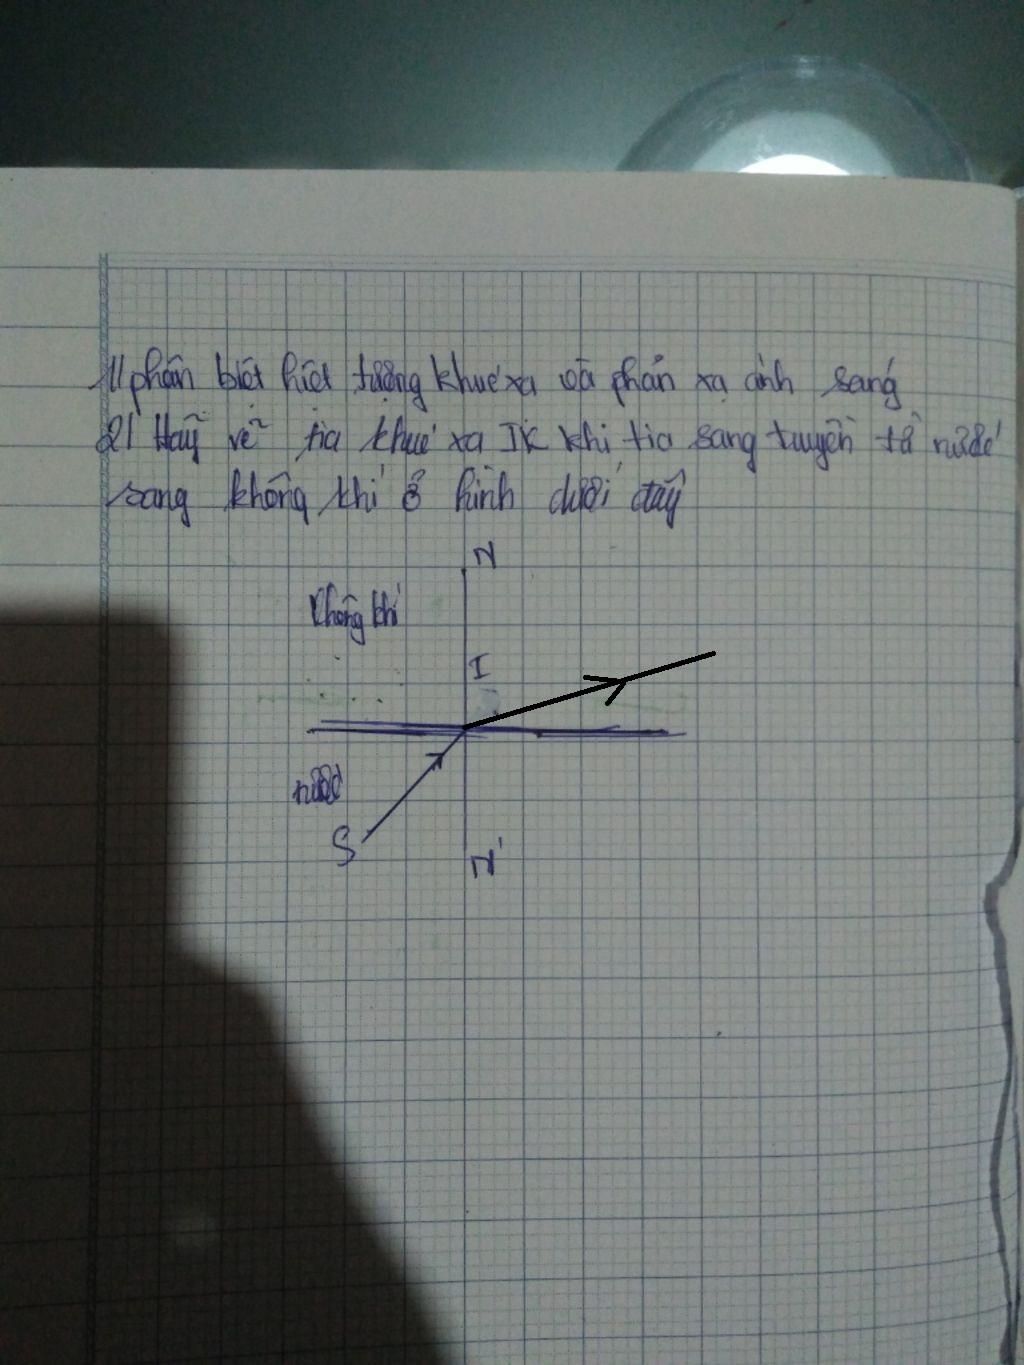 1/ phân biệt hiệt tượng khuế xạ và phản xạ ánh sáng
2/ Hãy vẽ tia khuế xạ IK khi tia sang truyền từ nước
sang không khí ở hình dưới đây
N
Không khí
I
nước
S
N'